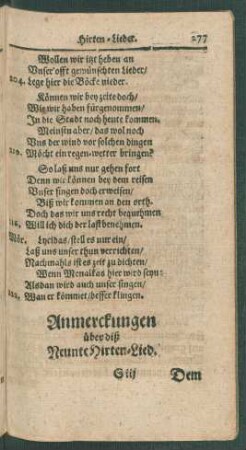 Hirten-Lieder. 277
Wollen wir itzt heben an
Unser offt gewünschten Lieder/
204. Lege hier die Böcke nieder.
Können wir bey zeite doch/
Wie wir haben fürgenommen/
In die Stadt noch heute kommen.
Meinstu aber/ das wol noch
Uns der wind vor solchen dingen
Möcht ein regen-wetter bringen?
So laß uns nur gehen fort
Denn wir können bey dem reisen
Unser singen doch erweisen/
Biß wir kommen an den orth.
Doch das wir uns recht bequehmen
Will ich dich der last benehmen.
Mör. Lycidas/ stell es nur ein/
Laß uns unser thun verrichten/
Nachmahls ist es zeit zu dichten/
Wenn Menalkas hier wird seyn:
Alsdan wird auch unser singen/
Wan er kömmet/ besser klingen.
Anmerckungen
über diß
Neunte Hirten-Lied.
S iij Dem